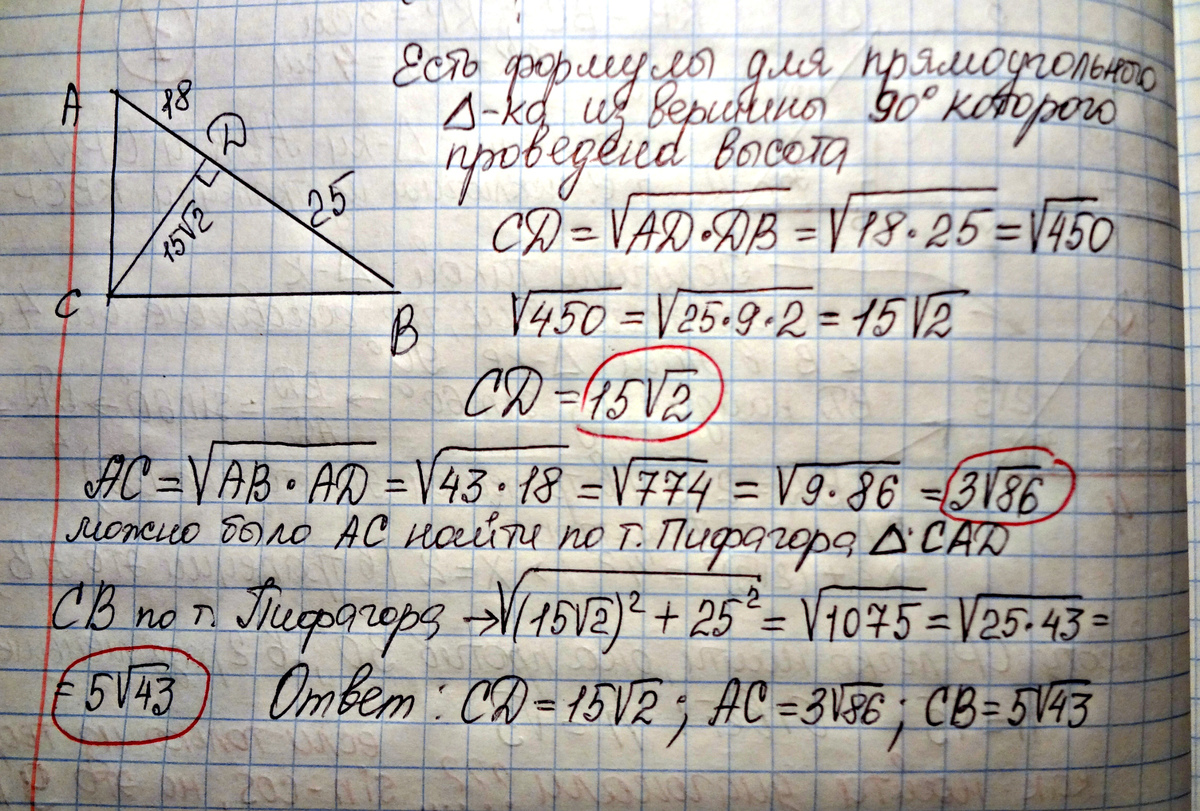 Есть формулы для прямоугольного
Δ-ка из вершины 90° которого
проведена высота
A
18
D
25
15√2
C
B
CD = √AD·DB = √18·25 = √450
√450 = √25·9·2 = 15√2
CD = 15√2
AC = √AB·AD = √43·18 = √774 = √9·86 = 3√86
можно было AC найти по т. Пифагора Δ CAD
CB по т. Пифагора → √(15√2)² + 25² = √1075 = √25·43 =
= 5√43 Ответ: CD = 15√2; AC = 3√86; CB = 5√43